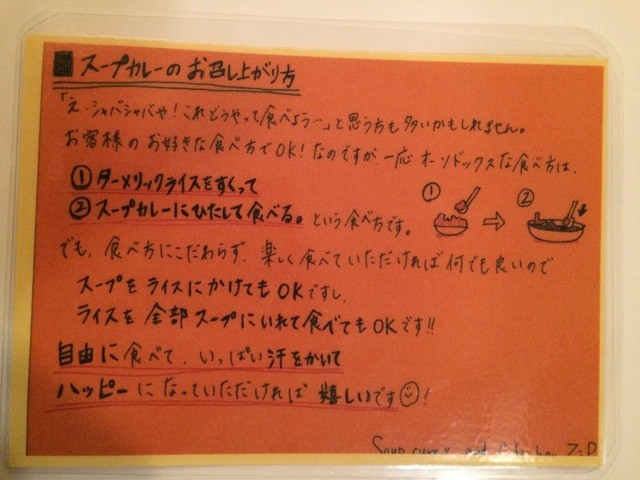 ■ スープカレーのお召し上がり方
「え…シャバシャバや!これどうやって食べよう…」と思う方も多いかもしれません。
お客様のお好きな食べ方でOK!なのですが、一応オーソドックスな食べ方は、
①ターメリックライスをすくって
②スープカレーにひたして食べる。という食べ方です。
① ⇒ ②
でも、食べ方にこだわらず、楽しく食べていただければ何でも良いので
スープをライスにかけてもOKですし、
ライスを全部スープにいれて食べてもOKです!!
自由に食べて、いっぱい汗をかいて
ハッピーになっていただければ嬉しいです☺!
Soup curry and